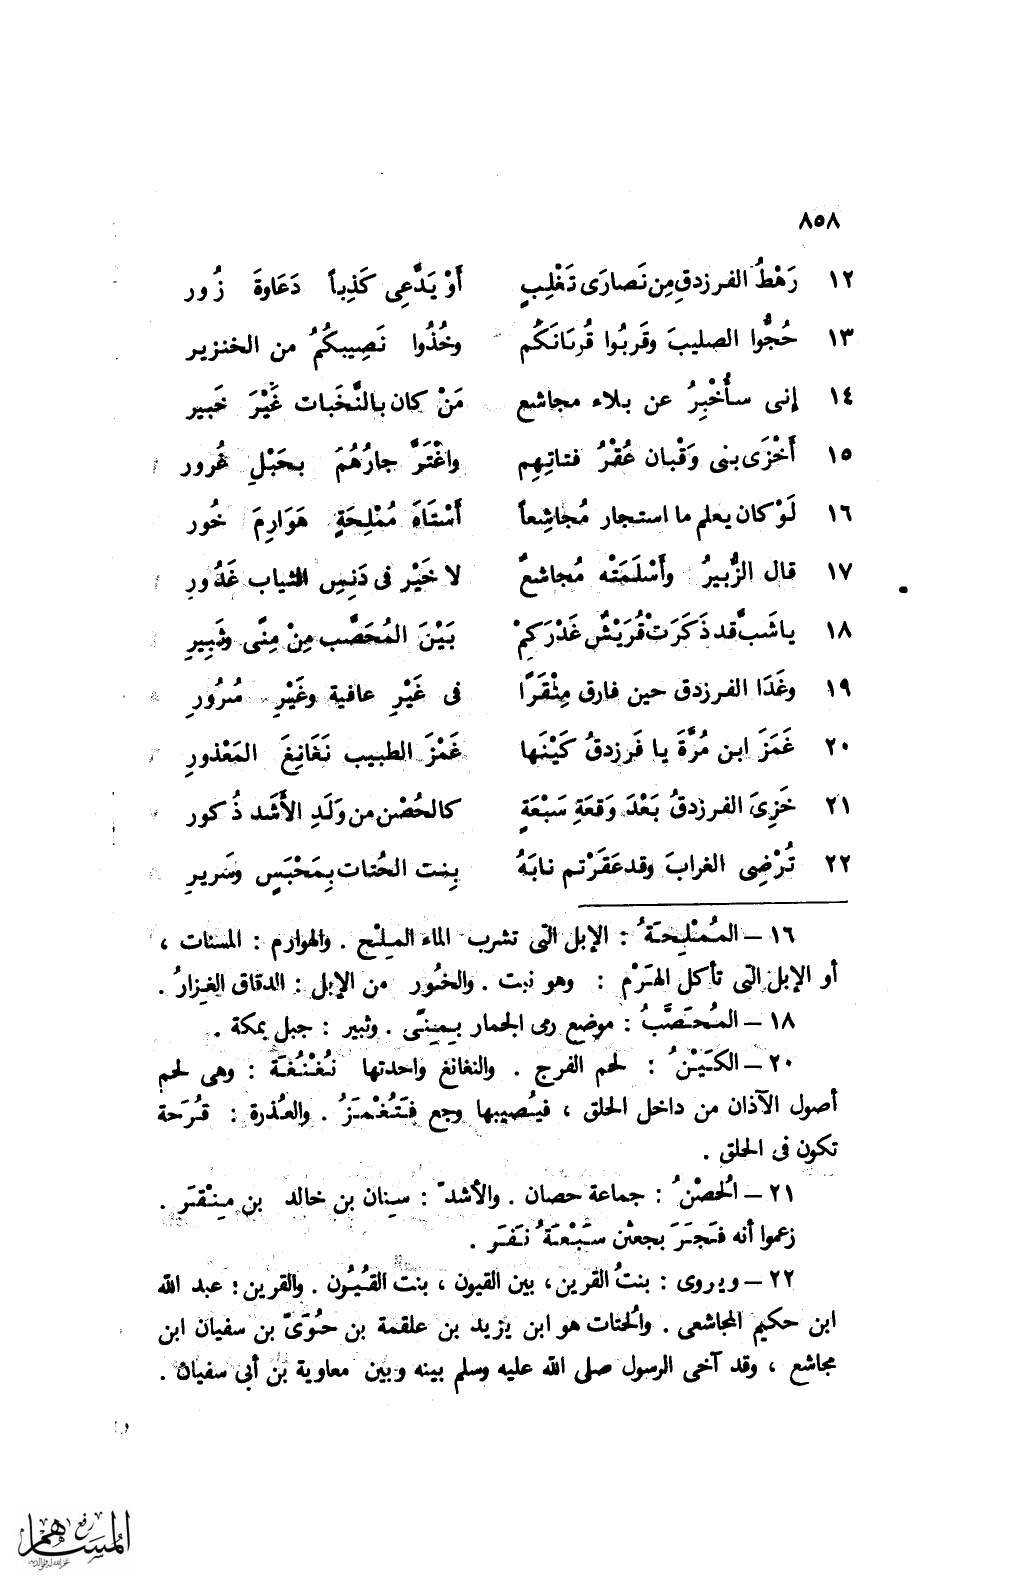 ٨٥٨
١٢ رَهْطُ الفرزدقِ مِن نَصارَى تَغْلِبٍ أَوْ يَدَّعِى كَذِباً دَعَاوةَ زُور
١٣ حُجُّوا الصليبَ وقَربُوا قُربَانَكُم وخُذُوا نَصِيبكُمُ من الخنزير
١٤ إنى سأُخْبِرُ عن بلاء مجاشع مَنْ كان بالنَّخَبات غَيْرَ خَبير
١٥ أَخْزَى بنى وَقْبان عُقْرُ فتاتِهِم واغْتَرَّ جارُهُمَ بحَبْلِ غُرور
١٦ لَوْ كان يعلم ما استجار مُجاشِعاً أَسْتَاهَ مُمْلِحَةٍ هَوَارِمَ خُور
١٧ قال الزُّبيرُ وأَسْلَمَتْه مُجاشعٌ لا خَيْر فى دَنِسِ الثياب غَدُورِ
١٨ يا شَبَّ قد ذَكَرَتْ قُرَيْشٌ غَدْرَكمْ بَيْنَ المُحَصَّب مِنْ مِنًى وثَبِيرِ
١٩ وغَدَا الفرزدق حين فارق مِنْقَرًا فى غَيْرِ عافية وغَيْرِ سُرُورِ
٢٠ غَمَزَ ابن مُرَّةَ يا فَرزدقُ كَيْنَها غَمْزَ الطبيب نَغَانِغَ المَعْذورِ
٢١ خَزِىَ الفرزدقُ بَعْدَ وَقعَةِ سَبْعَةٍ كالحُصْن من وَلَدِ الأَشَد ذُكور
٢٢ تُرْضِى الغرابَ وقد عَقَرْتم نابَهُ بِنت الحُتات بِمَحْبَسٍ وسَريرِ
١٦ – المُمْلِحَةُ : الإبل التى تشرب الماء المِلْح . والهوارم : المسنات ،
أو الإبل التى تأكل الهَرْم : وهو نبت . والخُور من الإبل : الدقاق الغِزارُ .
١٨ – المُحَصَّبُ : موضع رمى الجمار بِمِنًى . وثبير : جبل بمكة .
٢٠ – الكَيْنُ : لحم الفرج . والنغانغ واحدتها نُغْنُغَة : وهى لحم
أصول الآذان من داخل الحلق ، فيُصيبها وجع فَتُغْمَزُ . والعُذرة : قُرَحة
تكون فى الحلق .
٢١ – الحُصْنُ : جماعة حصان . والأشدّ : سنان بن خالد بن مِنْقَر .
زعموا أنه فَجَرَ بجعثن سَبْعَةُ نَفَر .
٢٢ – ويروى : بنتُ القرين ، بين القيون ، بنت القُيُون . والقرين : عبد الله
ابن حكيم المجاشعى . والحُتات هو ابن يزيد بن علقمة بن حُوَىّ بن سفيان ابن
مجاشع ، وقد آخى الرسول صلى الله عليه وسلم بينه وبين معاوية بن أبى سفيان .
رفع
المساهم